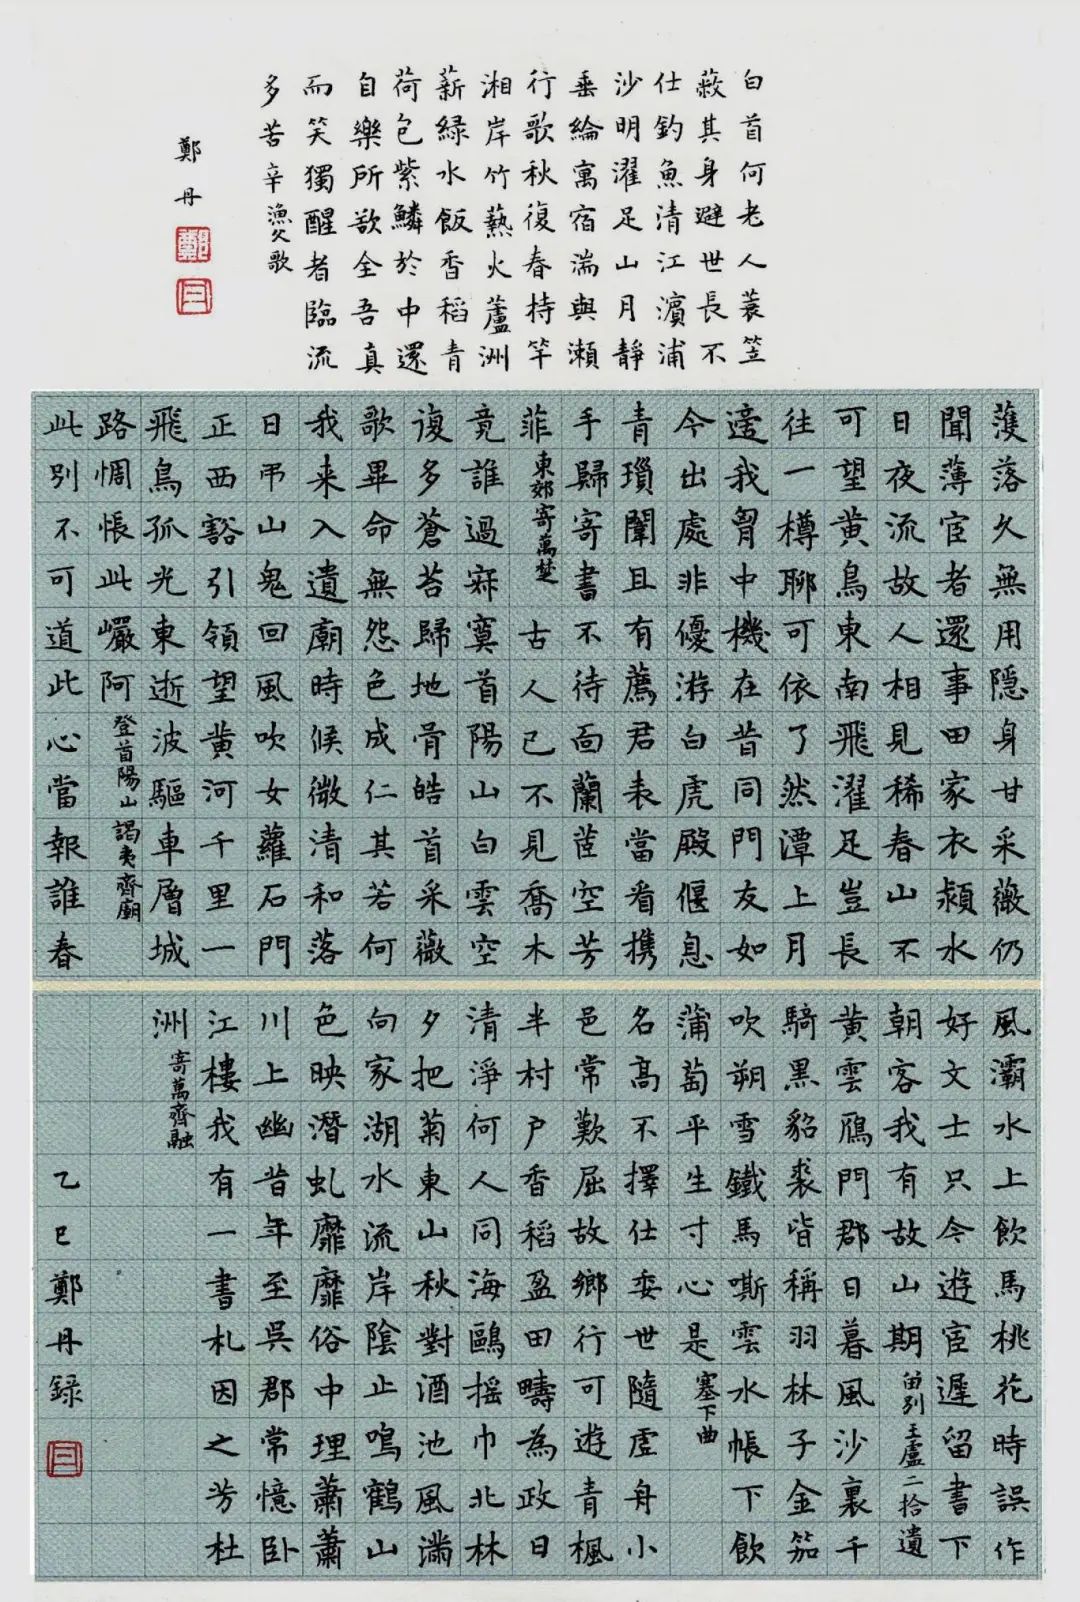 白首何老人蓑笠
蔽其身避世長不
仕釣魚清江濱浦
沙明濯足山月靜
垂綸寓宿湍與瀨
行歌秋復春持竿
湘岸竹爇火蘆洲
薪緑水飯香稻青
荷包紫鱗於中還
自樂所欲全吾真
而笑獨醒者臨流
多苦辛 漁父歌
鄭丹
濩落久無用隱身甘采薇仍
聞薄宦者還事田家衣潁水
日夜流故人相見稀春山不
可望黃鳥東南飛濯足豈長
往一樽聊可依了然潭上月
適我胷中機在昔同門友如
今出處非優游白虎殿偃息
青瑣闈且有薦君表當看携
手歸寄書不待面蘭茝空芳
菲 東郊寄萬楚 古人已不見喬木
竟誰過寂寞首陽山白雲空
復多蒼苔歸地骨皓首采薇
歌畢命無怨色成仁其若何
我来入遺廟時候微清和落
日弔山鬼回風吹女蘿石門
正西豁引領望黃河千里一
飛鳥孤光東逝波驅車層城
路惆悵此巖阿 登首陽山謁夷齊廟
此別不可道此心當報誰春
風灞水上飲馬桃花時誤作
好文士只今遊宦遲留書下
朝客我有故山期 留別王盧二拾遺
黃雲鴈門郡日暮風沙裏千
騎黑貂裘皆稱羽林子金笳
吹朔雪鐵馬嘶雲水帳下飲
蒲萄平生寸心是 塞下曲
名高不擇仕委世隨虛舟小
邑常歎屈故鄉行可遊青楓
半村戶香稻盈田疇為政日
清淨何人同海鷗摇巾北林
夕把菊東山秋對酒池風滿
向家湖水流岸陰止鳴鶴山
色映潛虬靡靡俗中理蕭蕭
川上幽昔年至吳郡常憶卧
江樓我有一書札因之芳杜
洲 寄萬齊融
乙巳鄭丹録